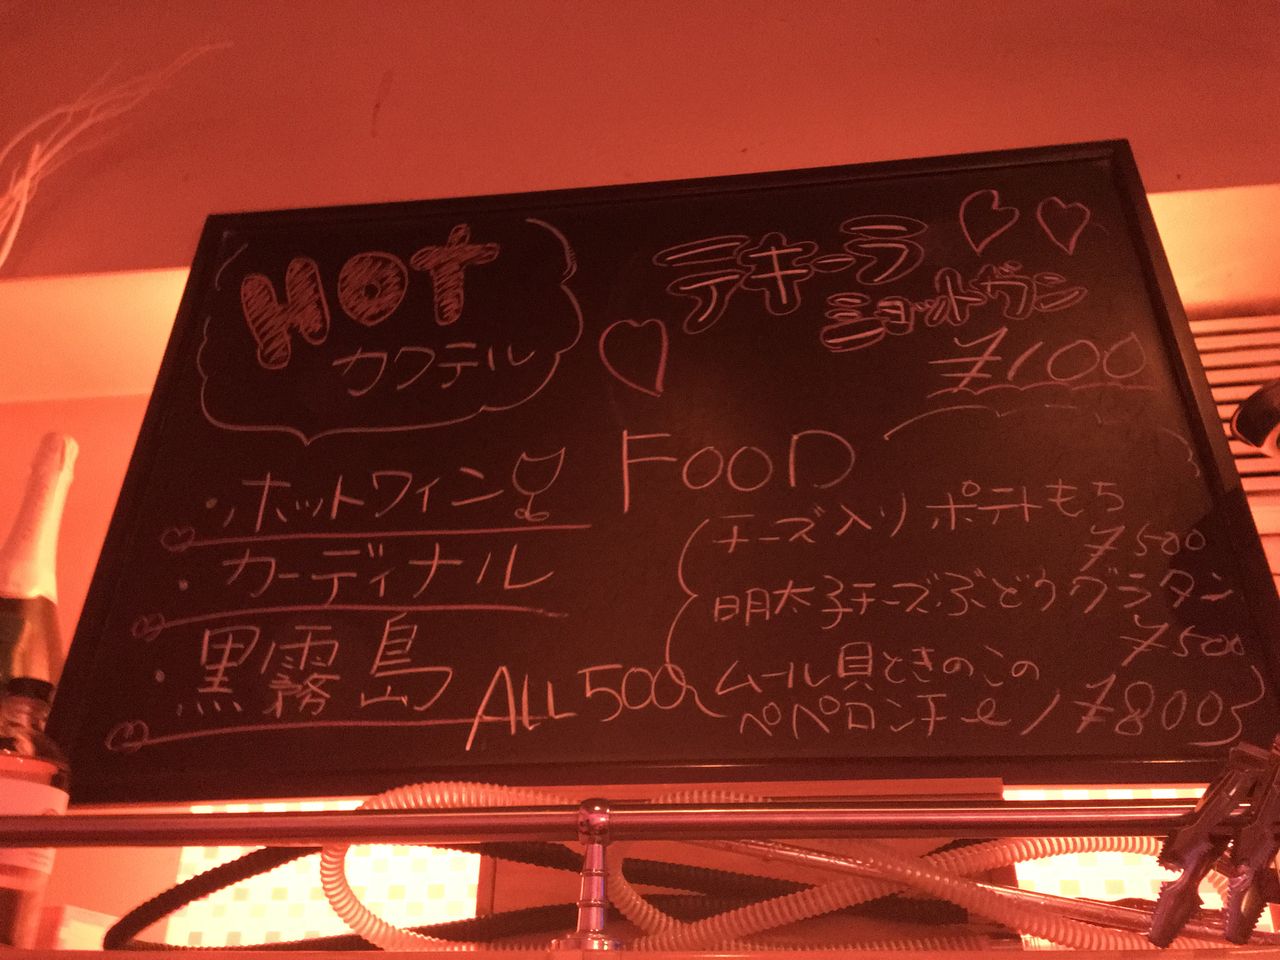 HOT
カクテル
・ホットワイン
・カーディナル
・黒霧島
ALL 500
テキーラ
ショットガン
¥100
FOOD
チーズ入りポテトもち
¥500
明太子チーズぶどうグラタン
¥500
ムール貝ときのこの
ペペロンチーノ ¥800